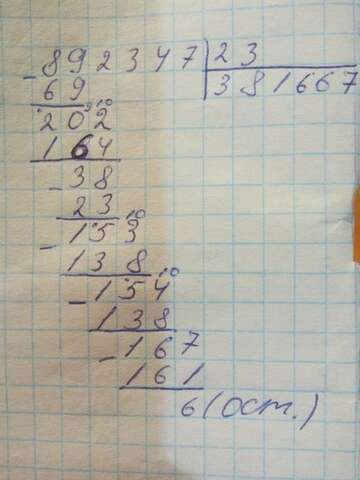 892347 23
69 381667
9 10
202
164
38
23
10
153
138
10
154
138
167
161
6 (ост.)